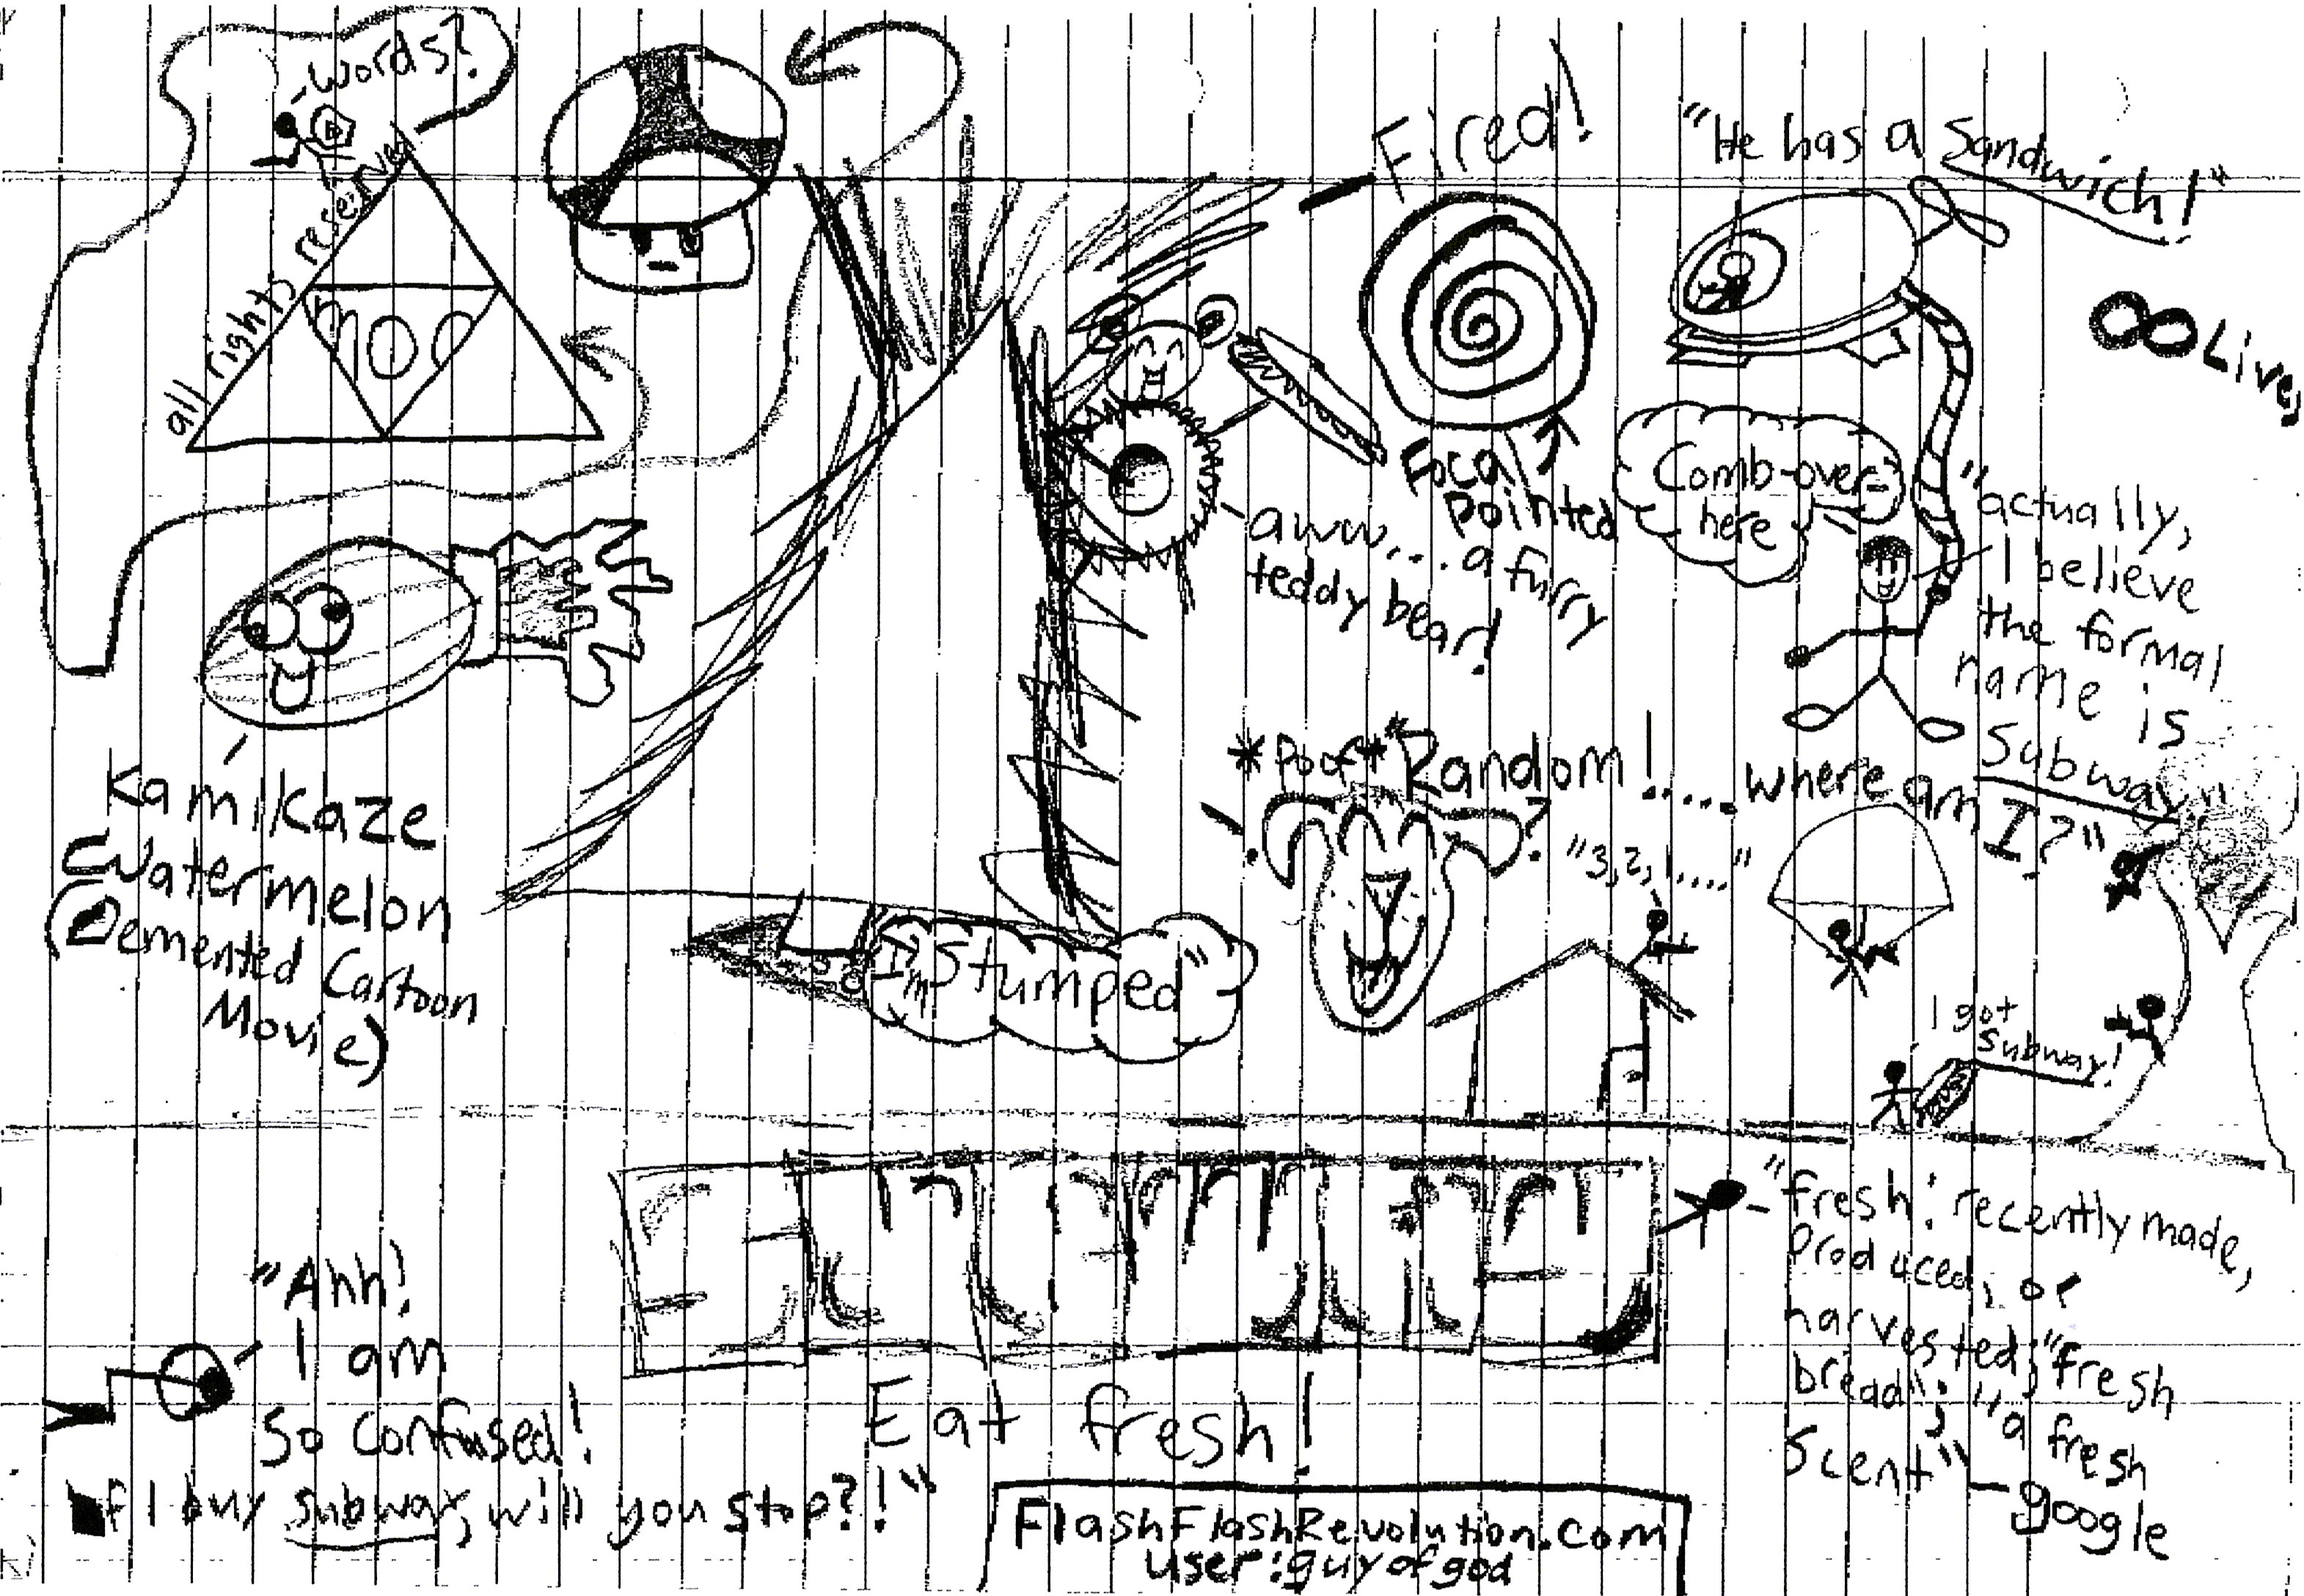 words?
all rights reserved
Fired!
"He has a Sandwich!"
∞ Lives
Focal
Pointed
Comb-over
here
aww... a furry
teddy bear!
"actually,
I believe
the formal
name is
Subway"
Kamikaze
Watermelon
(Demented Cartoon
Movie)
*Poof* "Random!.....where am I?"
?
"3,2,1...."
"I'm Stumped"
I got
Subway!
Eat fresh!
"Ahh!
I am
So Confused!
If I buy Subway, will you stop?!"
"fresh: recently made,
Produced, or
harvested; "fresh
bread"; "a fresh
Scent" - google
FlashFlashRevolution.com
user: guy of god